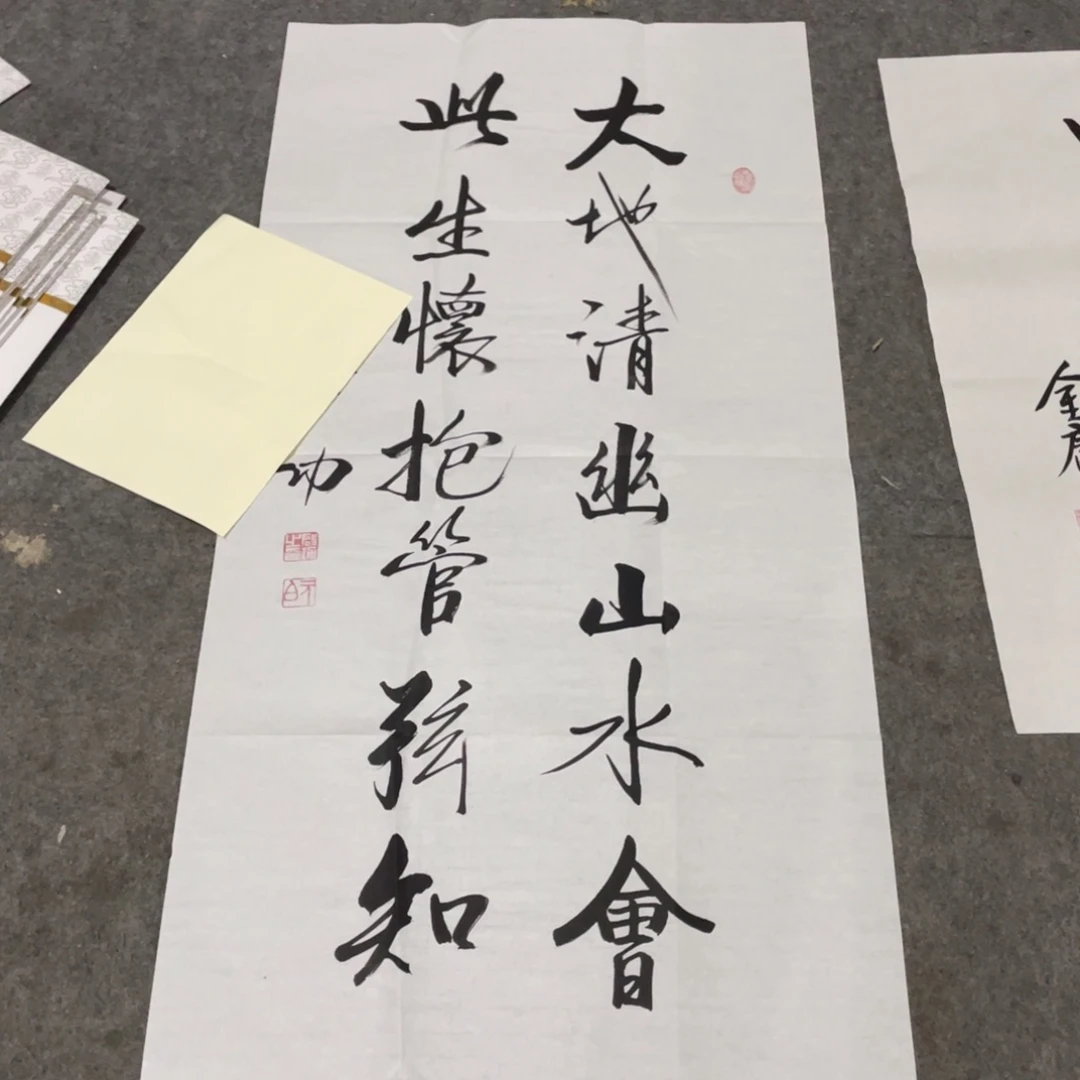 大地清幽山水會
此生懷抱管弦知
功